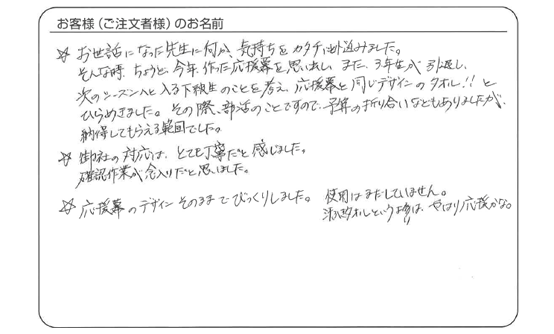 お客様（ご注文者様）のお名前
☆ お世話になった先生に何か、気持ちをカタチにと悩みました。
そんな時、ちょうど今年作った応援幕を思い出し、また、3年生が引退し、
次のシーズンへと入る下級生のことを考え、応援幕と同じデザインのタオル!! と
ひらめきました。その際、部活のことですので、予算の折り合いなどもありましたが、
納得してもらえる範囲でした。
☆ 御社の対応は、とても丁寧だと感じました。
確認作業が念入りだと思いました。
☆ 応援幕のデザインそのままでびっくりしました。 使用はまだしていません。
タオルという は、やはり応援かな。